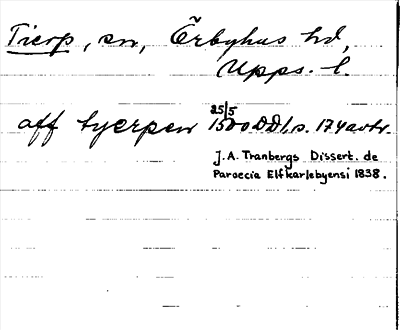 Tierp, sn, Örbyhus hd,
Upps. l.
25/5
aff tyerpen 1500 DD 1. s. 174 avtr.
J. A. Tranbergs Dissert. de
Paroecia Elfkarlebyensi 1838.